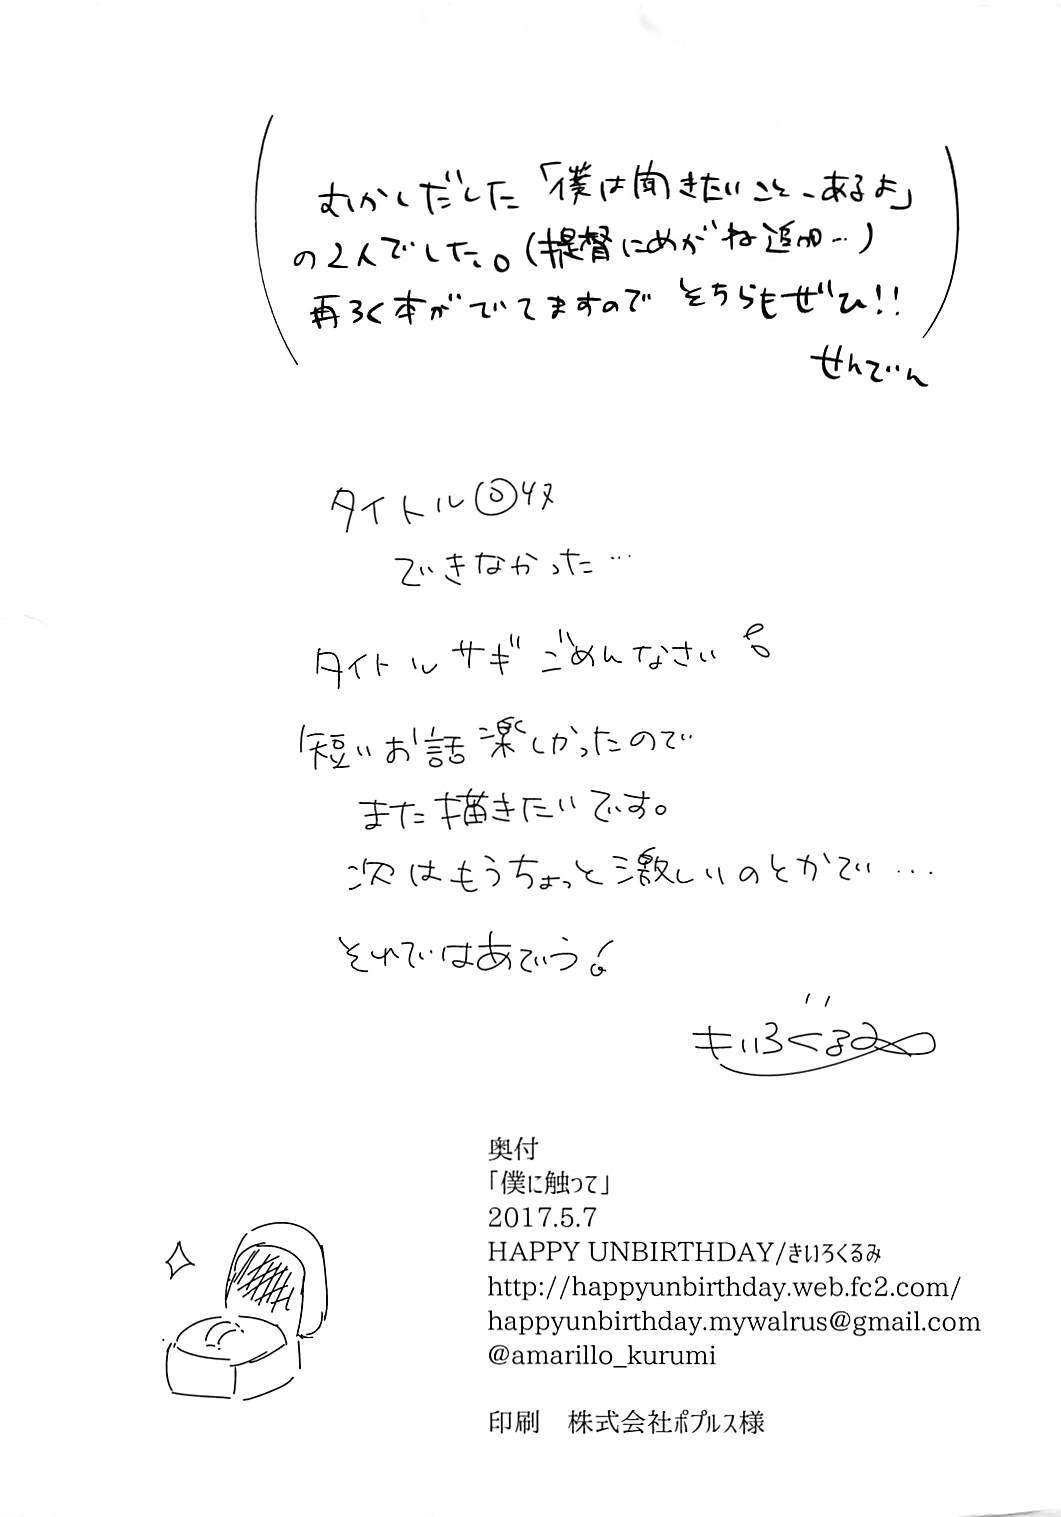 むかしだした「僕は聞きたいこと、あるよ」
の2人でした。(提督にめがね追加…)
再ろく本がでてますので そちらもぜひ!!
せんでん
タイトル回収
できなかった…
タイトルサギ ごめんなさい
短いお話楽しかったので
また描きたいです。
次はもうちょっと激しいのとかで…
それではあでゅう!
きいろくるみ
奥付
「僕に触って」
2017.5.7
HAPPY UNBIRTHDAY/きいろくるみ
http://happyunbirthday.web.fc2.com/
happyunbirthday.mywalrus@gmail.com
@amarillo_kurumi
印刷　株式会社ﾎﾟﾌﾟﾙｽ様